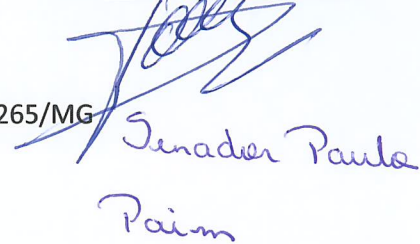 265/MG
Senador Paulo
Paim